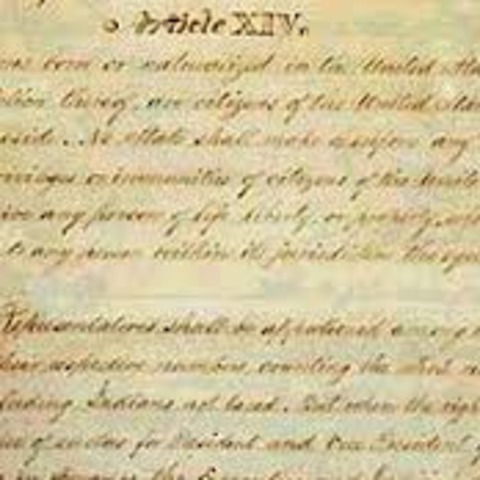 Article XIV.
born or naturalized in the United
thereof, are citizens of the United
No State shall make or enforce any
or immunities of citizens of the
any person of life, liberty, or property,
to any person within its jurisdiction the
Representatives shall be apportioned among
their respective numbers, counting the whole
Indians not taxed. But when the right
of electors for President and Vice President of
the Executive and